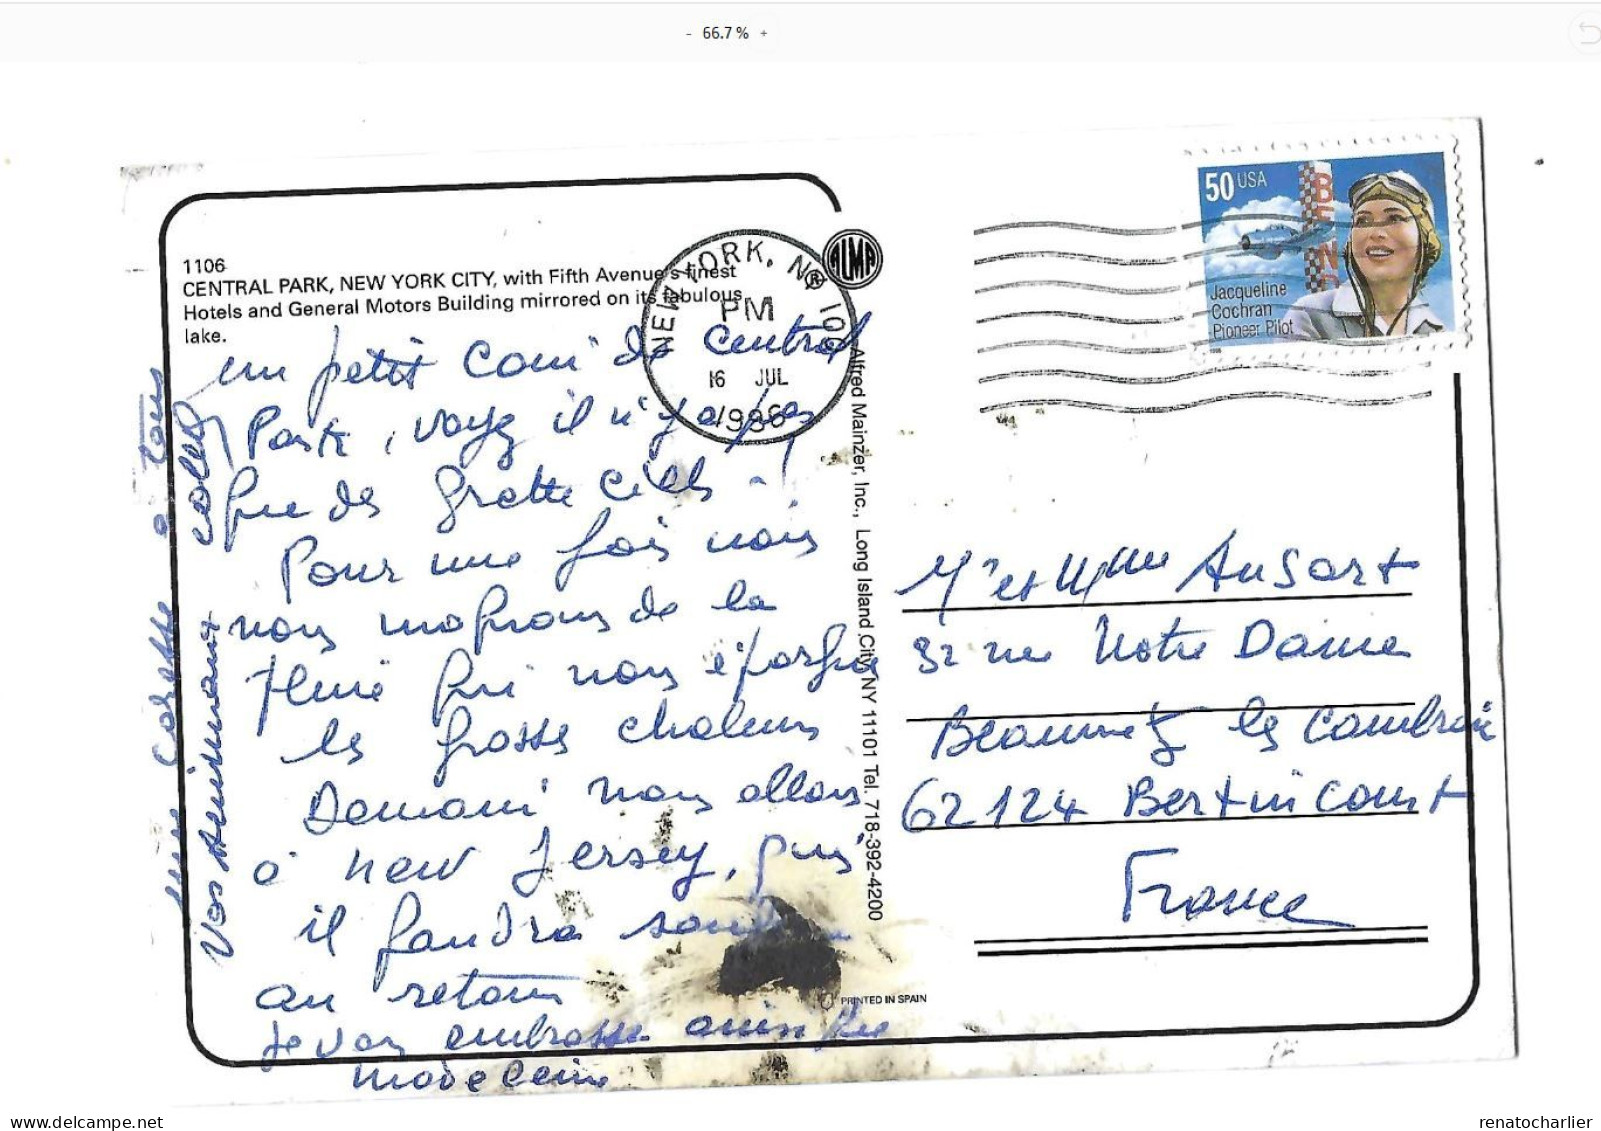 - 66.7 % +
1106
CENTRAL PARK, NEW YORK CITY, with Fifth Avenue's finest
Hotels and General Motors Building mirrored on its fabulous
lake.
un petit coin de Central
Park, voyez il n'y a pas
que des gratte ciels
Pour une fois nous
nous de la
pluie qui nous
les grosses chaleurs
Demain nous allons
à New Jersey, puis
il faudra
au retour
Je vous embrasse ainsi que
Madeleine
Vos Amis
une caresse à tous
NEW YORK, NY 101
PM
16 JUL
1996
® ALMA
Alfred Mainzer, Inc., Long Island City, NY 11101 Tel. 718-392-4200
PRINTED IN SPAIN
50 USA
BEND
Jacqueline
Cochran
Pioneer Pilot
1996
Mr et Mme Ansart
32 rue Notre Dame
Beaumetz les Cambrai
62124 Bertincourt
France
delcampe.net
renatocharlier